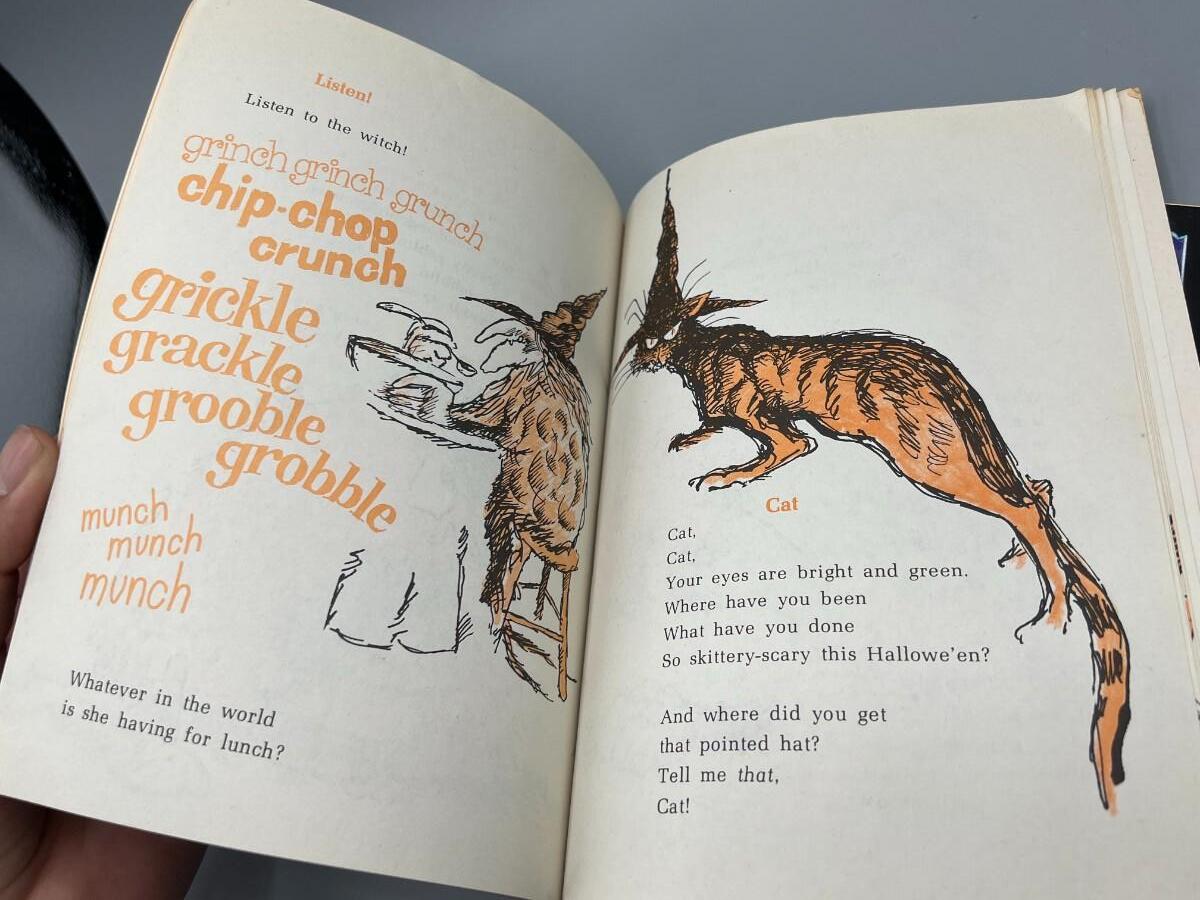 Listen!
Listen to the witch!
grinch grinch grunch
chip-chop
crunch
grickle
grackle
grooble
grobble
munch
munch
munch
Whatever in the world
is she having for lunch?
Cat
Cat,
Cat,
Your eyes are bright and green.
Where have you been
What have you done
So skittery-scary this Hallowe'en?
And where did you get
that pointed hat?
Tell me that,
Cat!